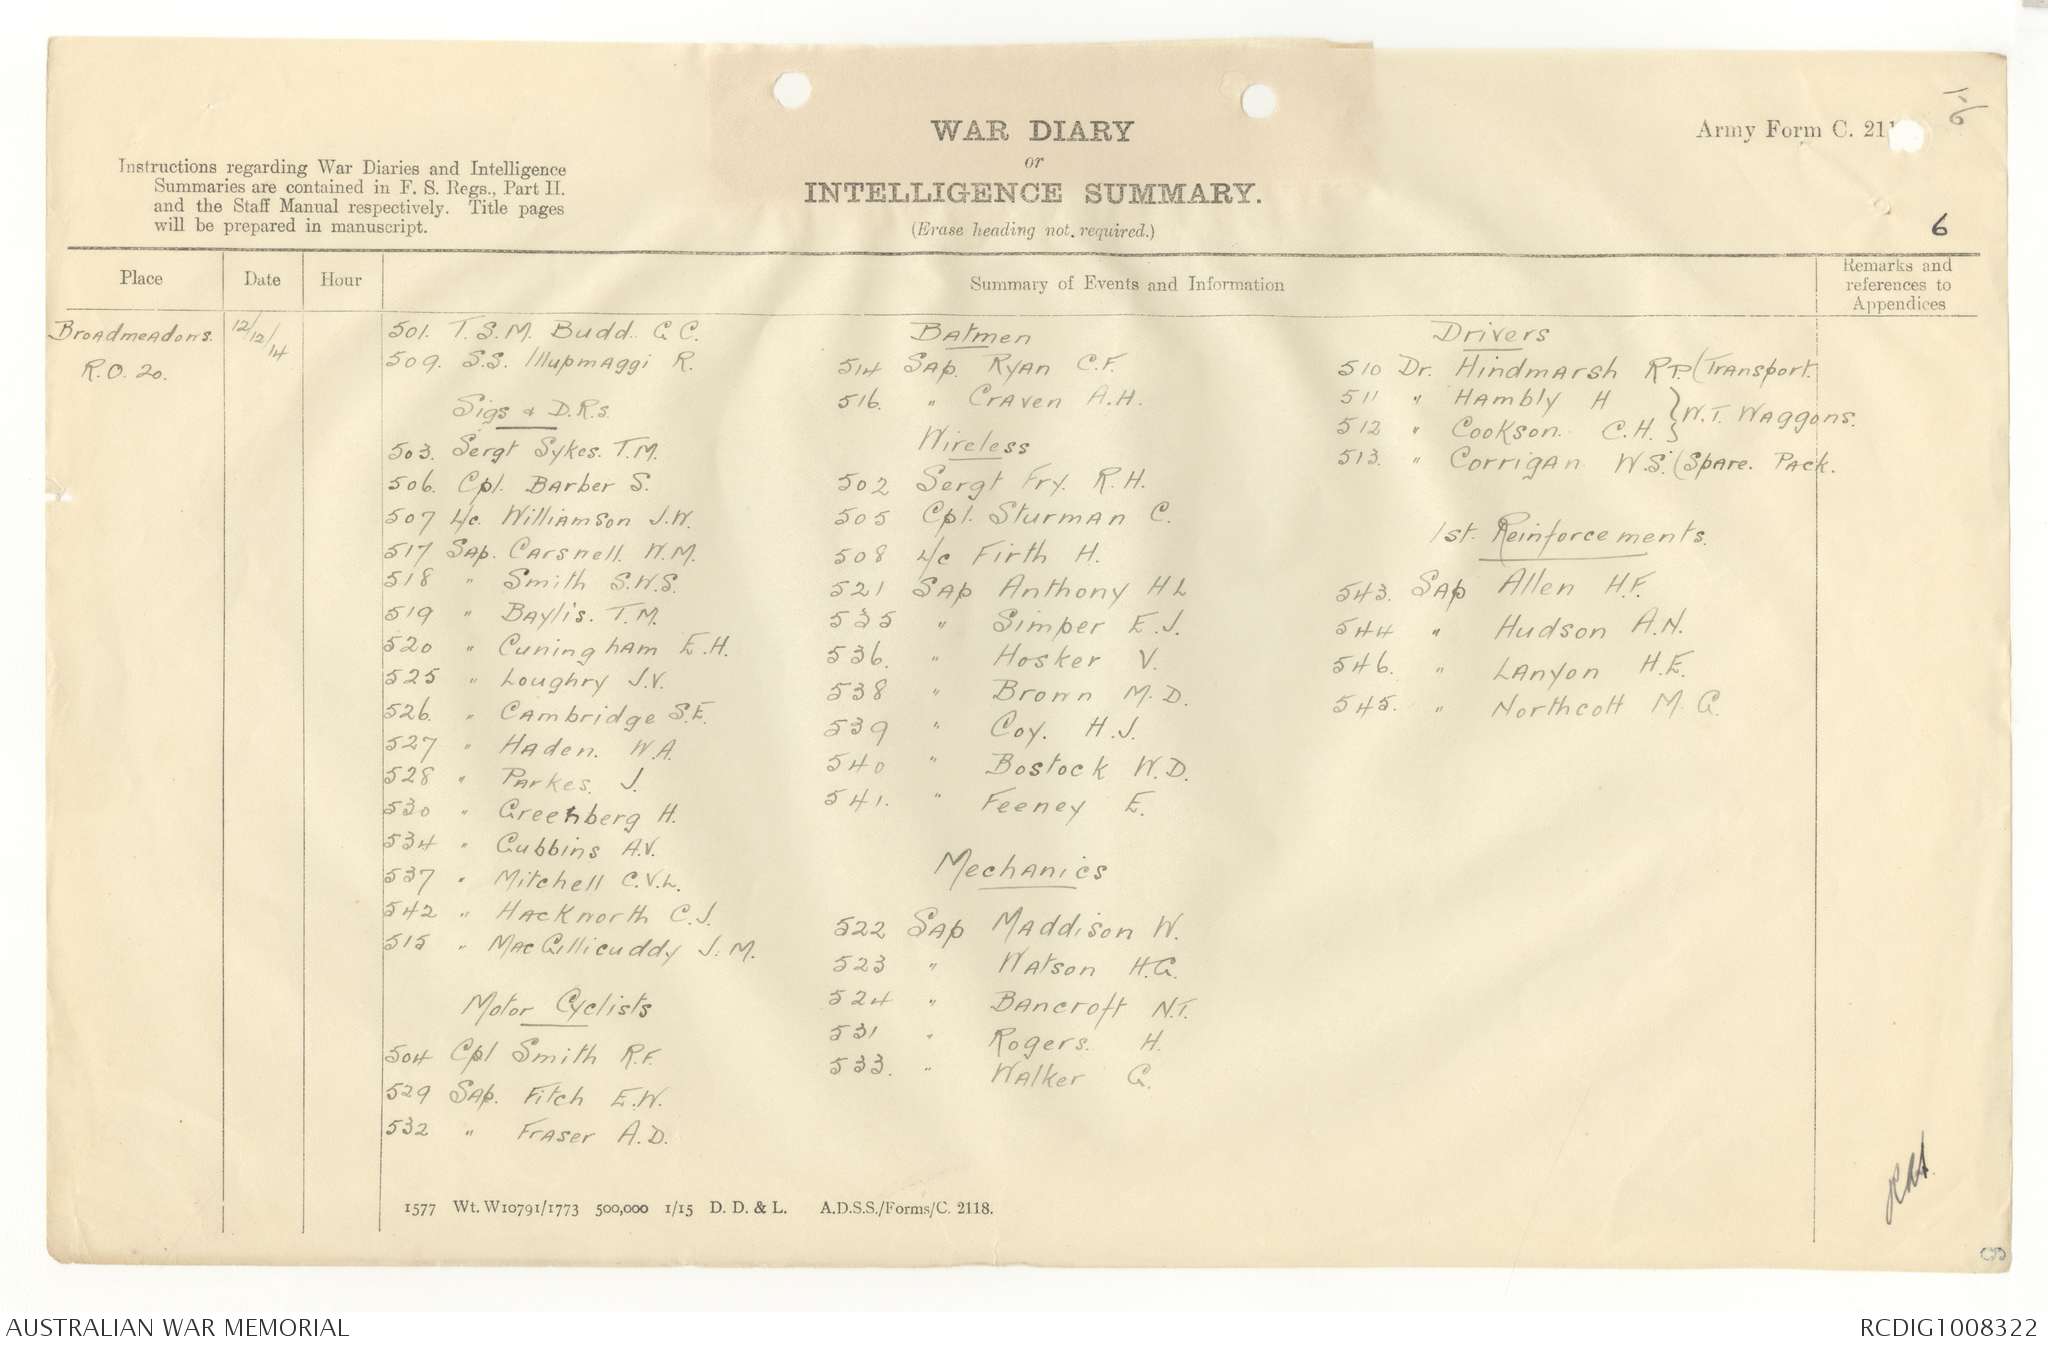 WAR DIARY
or
INTELLIGENCE SUMMARY.
(Erase heading not required.)
Army Form C. 211
Instructions regarding War Diaries and Intelligence
Summaries are contained in F. S. Regs., Part II.
and the Staff Manual respectively. Title pages
will be prepared in manuscript.
6
Place
Date
Hour
Summary of Events and Information
Remarks and
references to
Appendices
Broadmeadows.
R.O. 20.
12/12/14
501. T.S.M. Budd. G C.
509. S.S. Illupmaggi R.
Sigs & D.R.s.
503. Sergt Sykes. T.M.
506. Cpl. Barber S.
507 L/c. Williamson J.W.
517 Sap. Carsnell. W.M.
518 " Smith S.W.S.
519 " Baylis. T.M.
520 " Cuningham E.H.
525 " Loughry J.V.
526. " Cambridge S.E.
527 " Haden. W.A.
528 " Parkes. J.
530 " Greenberg H.
534 " Gubbins A.V.
537 " Mitchell C.V.L.
542 " Hackworth C.J.
515 " MacGillicuddy J.M.
Motor Cyclists
504 Cpl Smith R.F.
529 Sap. Fitch E.W.
532 " Fraser A.D.
Batmen
514 Sap. Ryan C.F.
516. " Craven A.H.
Wireless
502 Sergt Fry. R.H.
505 Cpl. Sturman C.
508 L/c Firth H.
521 Sap Anthony H L
535 " Simper E.J.
536. " Hosker V.
538 " Brown M.D.
539 " Coy. H.J.
540 " Bostock W.D.
541. " Feeney E.
Mechanics
522 Sap Maddison W.
523 " Watson H.G.
524 " Bancroft N.T.
531 " Rogers. H.
533. " Walker G.
Drivers
510 Dr. Hindmarsh R.P. (Transport.
511 " Hambly H
512 " Cookson. C.H. } W.T. Waggons.
513. " Corrigan W.S. (Spare. Pack.
1st. Reinforcements.
543. Sap Allen H.F.
544 " Hudson A.N.
546. " Lanyon H.E.
545. " Northcott M.G.
1577 Wt. W10791/1773 500,000 1/15 D. D. & L. A.D.S.S./Forms/C. 2118.
AUSTRALIAN WAR MEMORIAL
RCDIG1008322